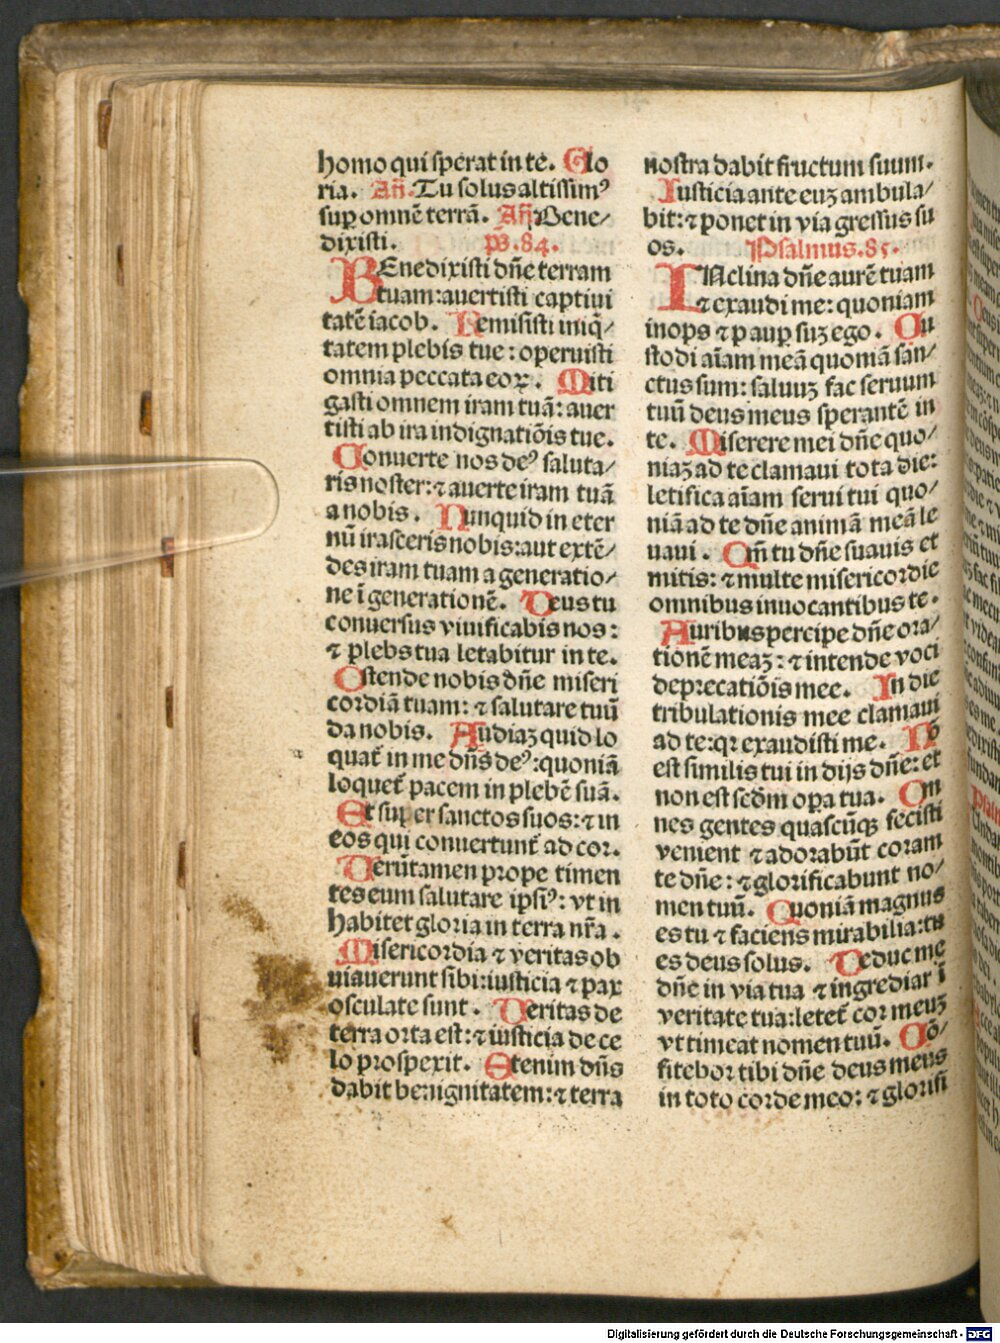 homo qui sperat in te. Glo
ria. Añ. Tu solus altissimꝰ
suꝑ omnē terrā. Añ Bene⸗
dixisti. p̄s. 84.
BEnedixisti dñe terram
tuam: auertisti captiui
tatē iacob. Remisisti iniq̄⸗
tatem plebis tue: operuisti
omnia peccata eoꝝ. Miti
gasti omnem iram tuā: auer
tisti ab ira indignatiōis tue.
Conuerte nos deꝰ saluta⸗
ris noster: ⁊ auerte iram tuā
a nobis. Nunquid in eter
nū irasceris nobis: aut extē⸗
des iram tuam a generatio⸗
ne ī generationē. Deus tu
conuersus viuificabis nos:
⁊ plebs tua letabitur in te.
Ostende nobis dñe miseri
cordiā tuam: ⁊ salutare tuū
da nobis. Audiaꝫ quid lo
quat᷑ in me dñs deꝰ: quoniā
loquet᷑ pacem in plebē suā.
Et super sanctos suos: ⁊ in
eos qui conuertunt᷑ ad cor.
Uerūtamen prope timen
tes eum salutare ipsiꝰ: vt in
habitet gloria in terra nr̄a.
Misericordia ⁊ veritas ob
uiauerunt sibi: iusticia ⁊ pax
osculate sunt. Ueritas de
terra orta est: ⁊ iusticia de ce
lo prospexit. Etenim dñs
dabit benignitatem: ⁊ terra
nostra dabit fructum suum.
Iusticia ante euꝫ ambula⸗
bit: ⁊ ponet in via gressus su
os. Psalmus. 85.
INclina dñe aurē tuam
⁊ exaudi me: quoniam
inops ⁊ pauꝑ suꝫ ego. Cu
stodi aīam meā quoniā san⸗
ctus sum: saluuꝫ fac seruum
tuū deus meus sperantē in
te. Miserere mei dñe quo⸗
niaꝫ ad te clamaui tota die:
letifica aīam serui tui quo⸗
niā ad te dñe animā meā le
uaui. Qm̄ tu dñe suauis et
mitis: ⁊ multe misericordie
omnibus inuocantibus te.
Auribus percipe dñe ora⸗
tionē meaꝫ: ⁊ intende voci
deprecatiōis mee. In die
tribulationis mee clamaui
ad te: qꝛ exaudisti me. Nō
est similis tui in dijs dñe: et
non est scd̄m oꝑa tua. Om
nes gentes quascūqꝫ fecisti
venient ⁊ adorabūt coram
te dñe: ⁊ glorificabunt no⸗
men tuū. Quoniā magnus
es tu ⁊ faciens mirabilia: tu
es deus solus. Deduc me
dñe in via tua ⁊ ingrediar ī
veritate tua: letet᷑ cor meuꝫ
vt timeat nomen tuū. Cō⸗
fitebor tibi dñe deus meus
in toto corde meo: ⁊ glorifi
Digitalisierung gefördert durch die Deutsche Forschungsgemeinschaft - DFG